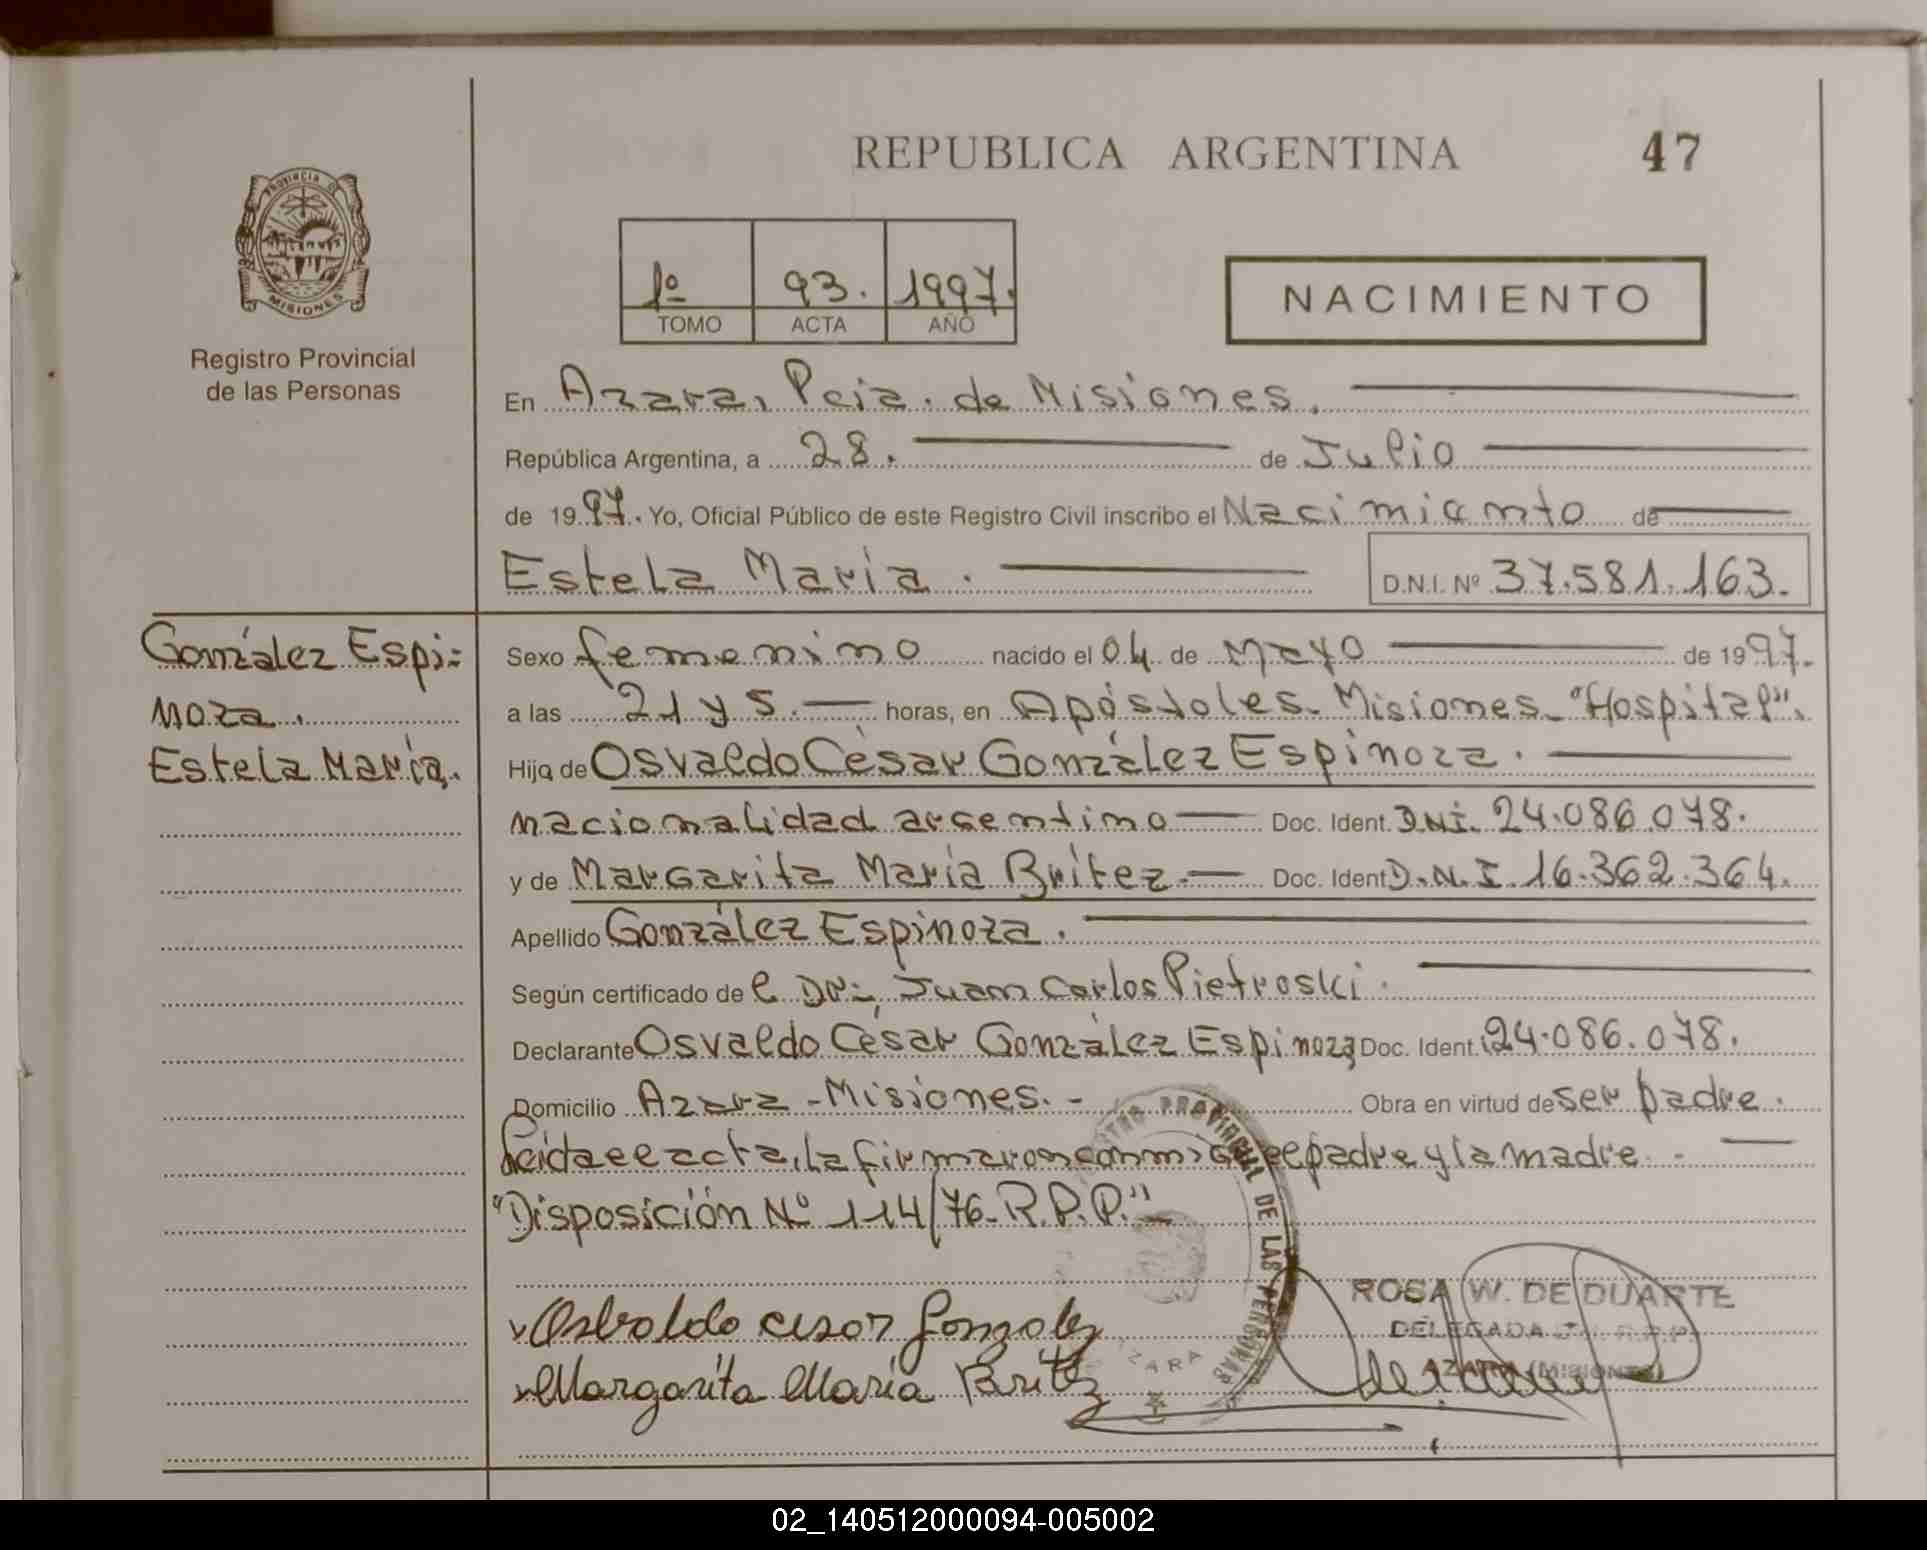 REPUBLICA ARGENTINA 47
PROVINCIA DE MISIONES
Registro Provincial
de las Personas
1º 93. 1997.
TOMO ACTA AÑO
NACIMIENTO
En Azara, Pcia. de Misiones.
República Argentina, a 28. de Julio
de 1997. Yo, Oficial Público de este Registro Civil inscribo el Nacimiento de
Estela María. D.N.I. Nº 37.581.163.
González Espi=
noza.
Estela María.
Sexo femenino nacido el 04 de Mayo de 1997.
a las 21 y 5. horas, en Apóstoles. Misiones. "Hospital".
Hija de Osvaldo César González Espinoza.
nacionalidad argentino Doc. Ident. DNI. 24.086.078.
y de Margarita María Brítez. Doc. Ident D.N.I. 16.362.364.
Apellido González Espinoza.
Según certificado de l Dr: Juan Carlos Pietroski.
Declarante Osvaldo César González Espinoza Doc. Ident. 24.086.078.
Domicilio Azara - Misiones. - Obra en virtud de ser padre.
Leida el acta, la firmaron conmigo el padre y la madre. -
"Disposición Nº 114/76-R.P.P."
Osbaldo cesar gonzalez
Margarita Maria Britez
REGISTRO PROVINCIAL DE LAS PERSONAS
AZARA
ROSA W. DE DUARTE
DELEGADA R.P.P.
AZARA (MISIONES)
02_140512000094-005002